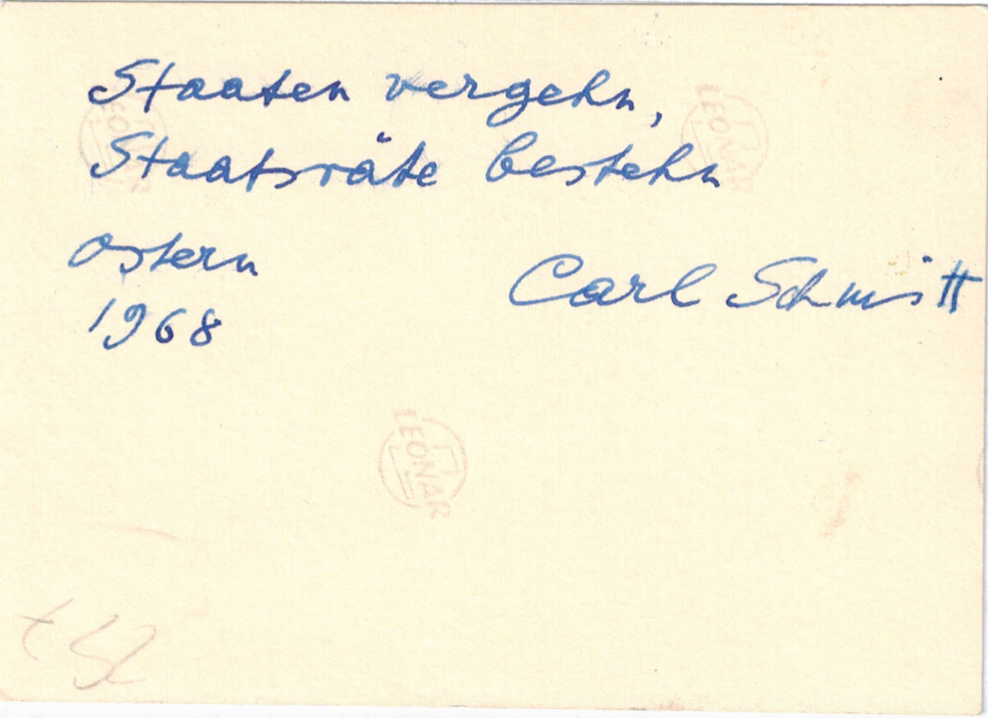 Staaten vergehn,
Staatsräte bestehn
Ostern
1968
Carl Schmitt
LEONAR
LEONAR
LEONAR